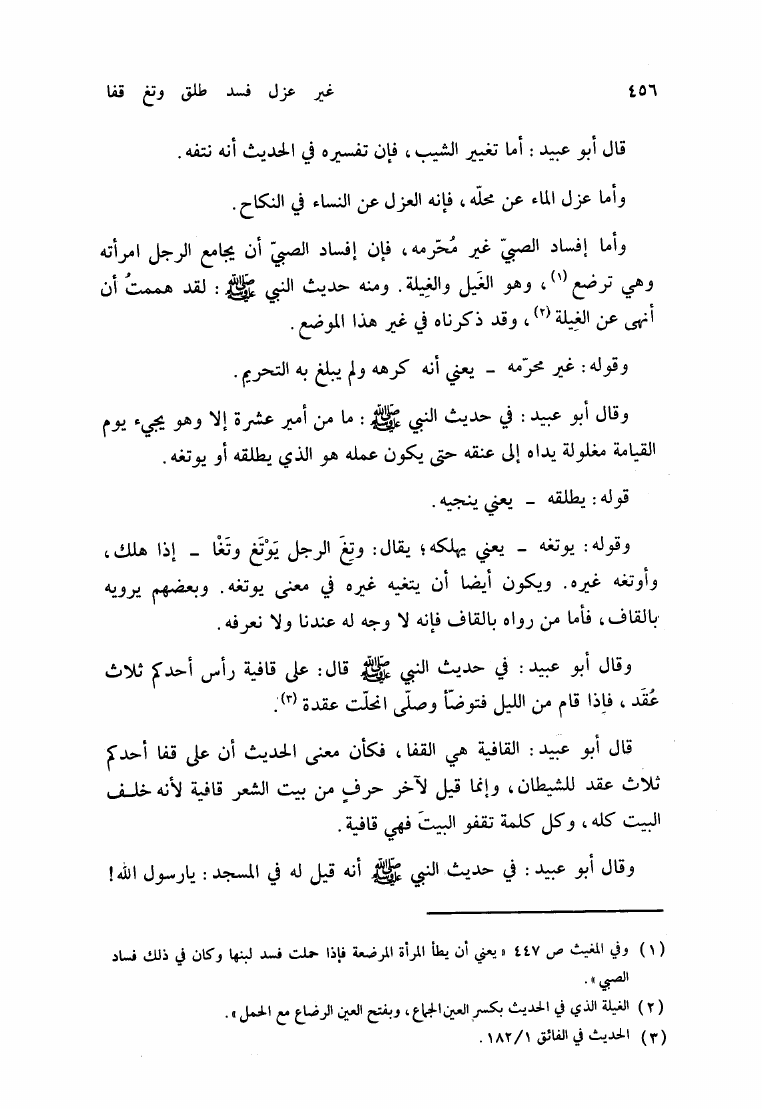 ٤٥٦ غير عزل فسد طلق وتغ قفا
قال أبو عبيد : أما تغيير الشيب ، فإن تفسيره في الحديث أنه نتفه .
وأما عزل الماء عن محلّه ، فإنه العزل عن النساء في النكاح .
وأما إفساد الصبيّ غير مُحَرّمه ، فإن إفساد الصبيّ أن يجامع الرجل امرأته
وهي ترضع (١) ، وهو الغَيل والغِيلة . ومنه حديث النبي ﷺ : لقد هممتُ أن
أنهى عن الغِيلة (٢) ، وقد ذكرناه في غير هذا الموضع .
وقوله : غير محرّمه – يعني أنه كرهه ولم يبلغ به التحريم .
وقال أبو عبيد : في حديث النبي ﷺ : ما من أمير عشرة إلا وهو يجيء يوم
القيامة مغلولة يداه إلى عنقه حتى يكون عمله هو الذي يطلقه أو يوتغه .
قوله : يطلقه – يعني ينجيه .
وقوله : يوتغه – يعني يهلكه ؛ يقال : وتِغَ الرجل يَوْتَغ وتَغْا – إذا هلك ،
وأوتغه غيره . ويكون أيضا أن يتغيه غيره في معنى يوتغه . وبعضهم يرويه
بالقاف ، فأما من رواه بالقاف فإنه لا وجه له عندنا ولا نعرفه .
وقال أبو عبيد : في حديث النبي ﷺ قال : على قافية رأس أحدكم ثلاث
عُقَد ، فإذا قام من الليل فتوضّأ وصلّى انحلّت عقدة (٣) .
قال أبو عبيد : القافية هي القفا ، فكأن معنى الحديث أن على قفا أحدكم
ثلاث عقد للشيطان ، وإنما قيل لآخر حرفٍ من بيت الشعر قافية لأنه خلف
البيت كله ، وكل كلمة تقفو البيتَ فهي قافية .
وقال أبو عبيد : في حديث النبي ﷺ أنه قيل له في المسجد : يارسول الله !
(١) وفي المغيث ص ٤٤٧ « يعني أن يطأ المرأة المرضعة فإذا حملت فسد لبنها وكان في ذلك فساد
الصبي » .
(٢) الغيلة الذي في الحديث بكسر العين الجماع ، وبفتح العين الرضاع مع الحمل » .
(٣) الحديث في الفائق ١٨٢/١ .